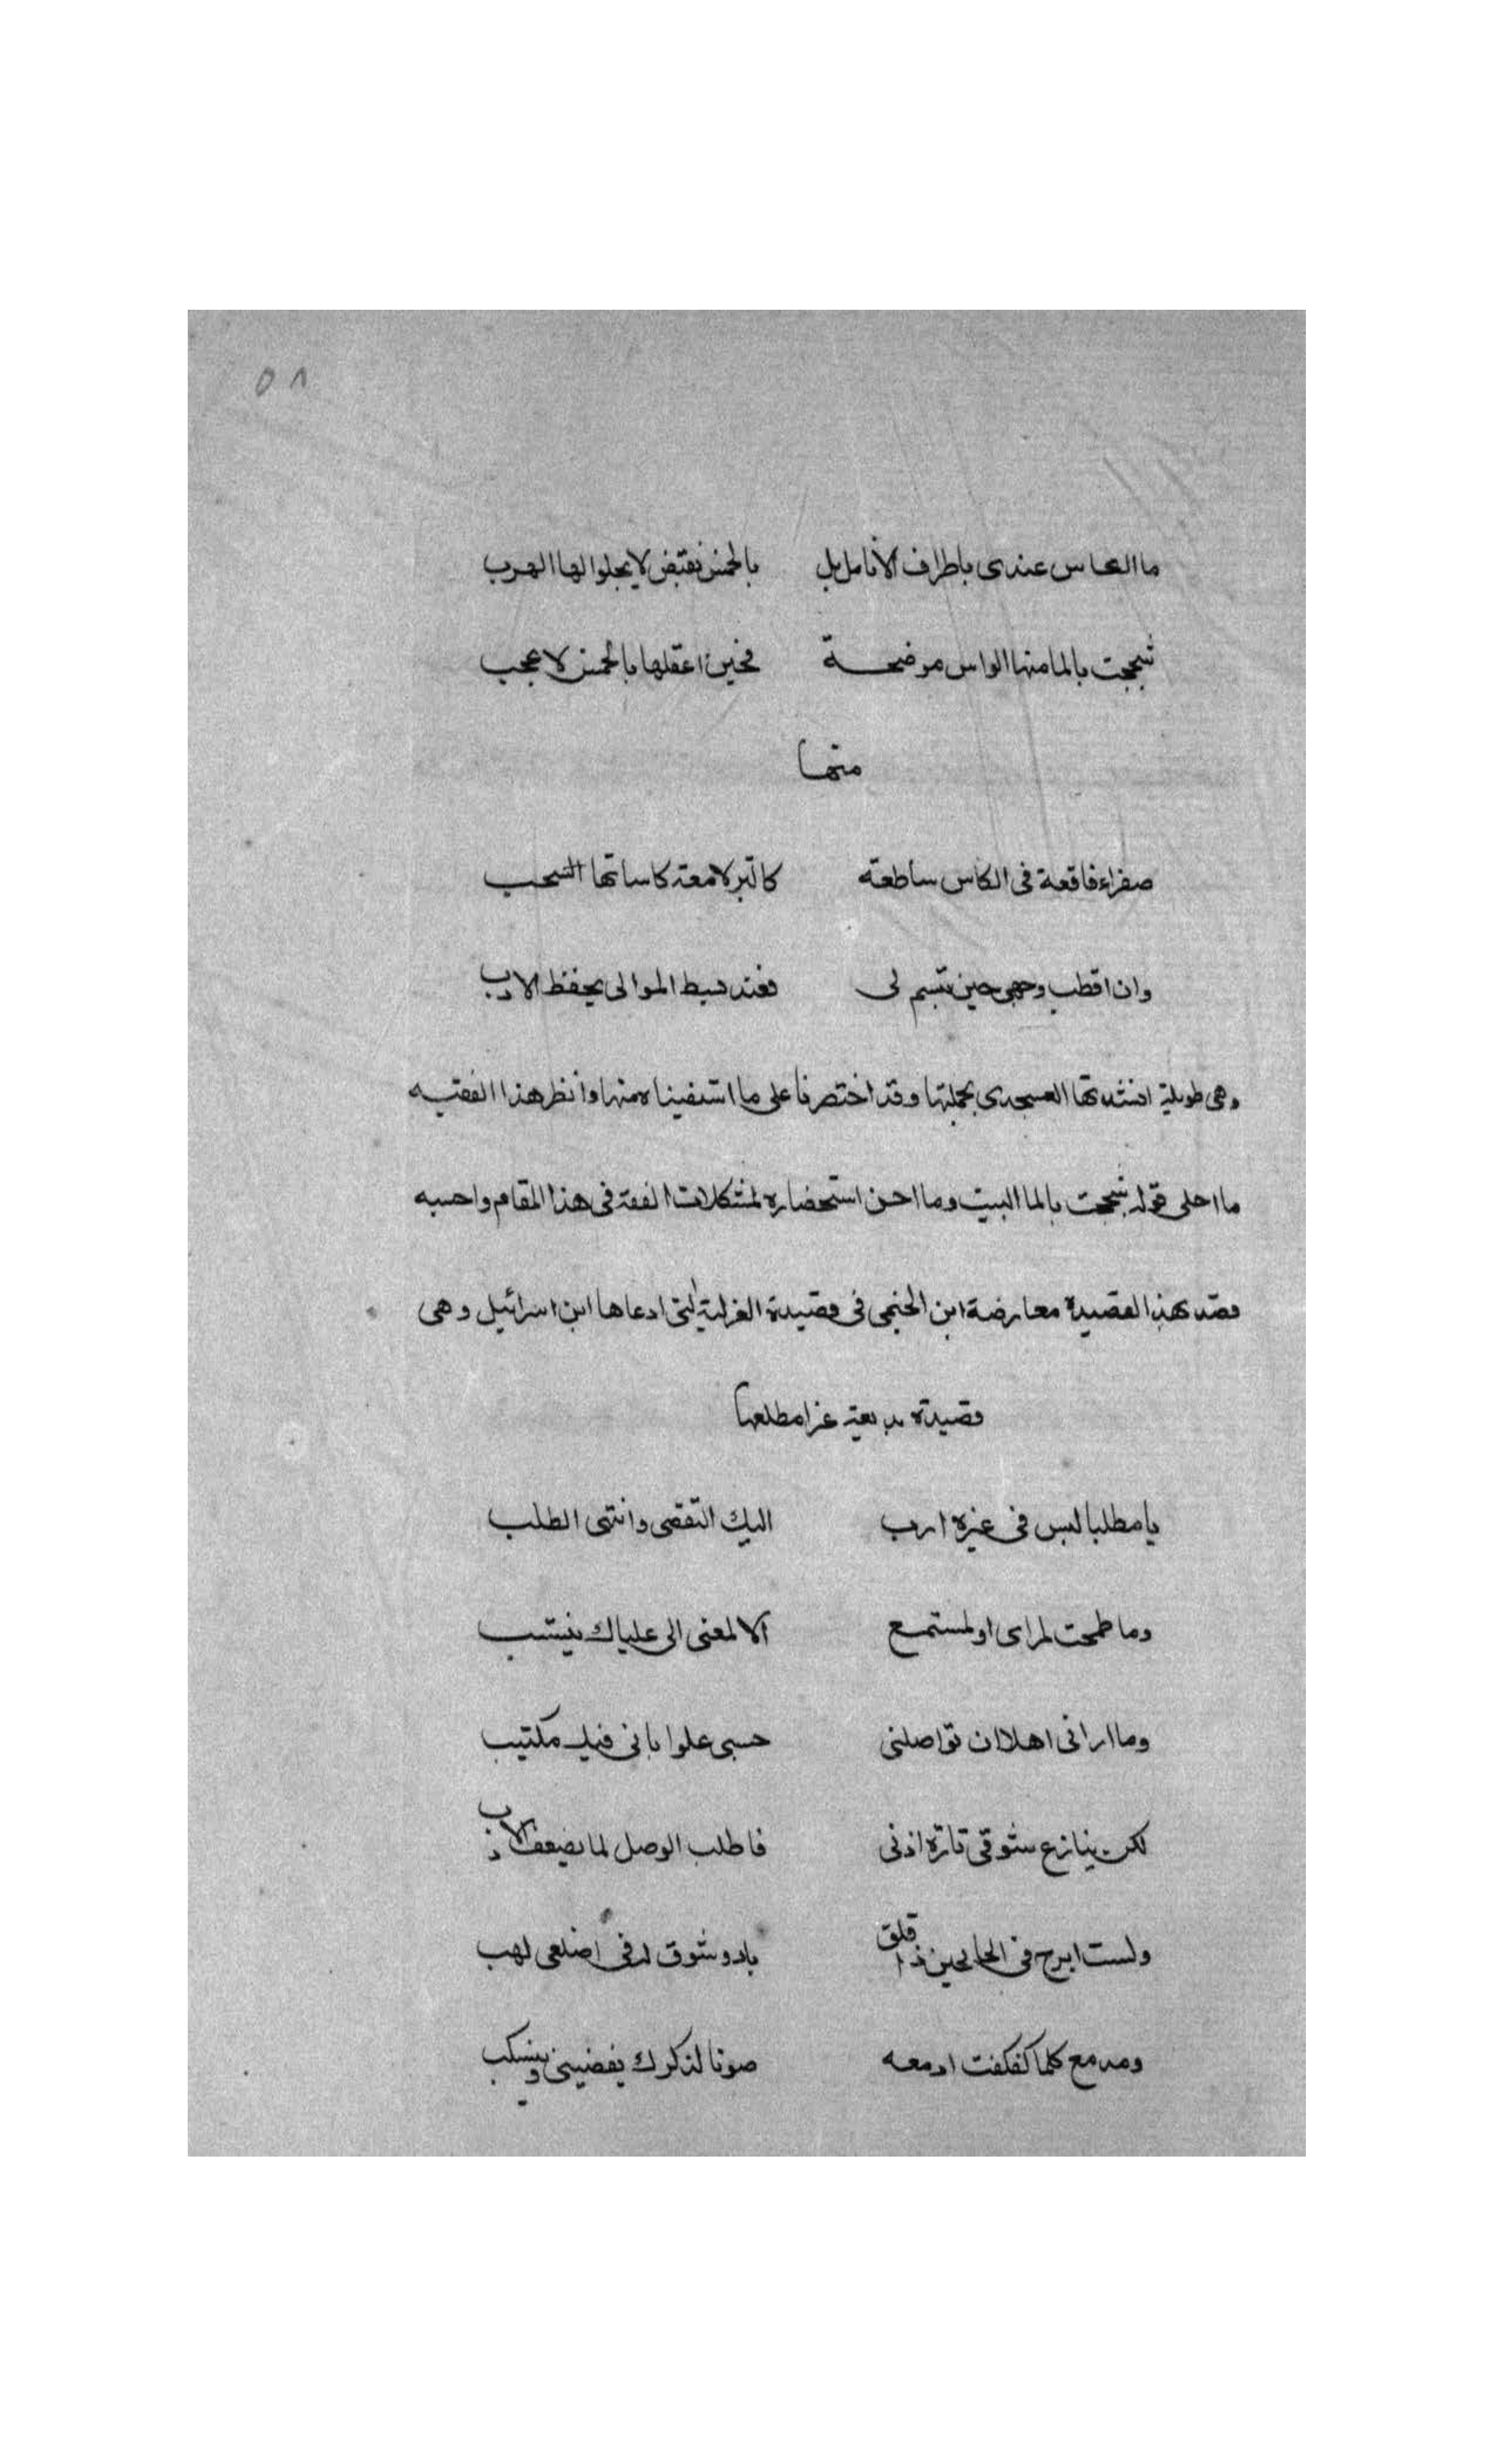 ٥٨
ما العاس عندى باطراف الأنامل بل بالخمس نقبض لا يحلوا لها الهرب
شججت بالما منها الراس موضحة فحين اعقلها بالخمس لا عجب
منها
صفراء فاقعة فى الكاس ساطعة كالتبر لامعة كاساتها السحب
وان اقطب وجهى حين تبسم لى فعند بسط الموالى يحفظ الادب
وهى طويلة انشدتها العسجدى بجملتها وقد اختصرنا على ما استفيناه منها وانظر هذا الفقيه
ما احلى قوله شججت بالما البيت وما احسن استحضاره لمشكلات الفقه فى هذا المقام واحسبه
قصد بهذا القصيدة معارضة ابن الخيمى فى قصيدة الغزلية التى ادعاها ابن اسرائيل وهى
قصيدة بديعة غرا مطلعها
يا مطلبا ليس فى غيره ارب اليك التقصى وانتهى الطلب
وما طمحت لمراى او لمستمع الا لمعنى الى علياك ينتسب
وما ارانى اهلا ان تواصلنى حسبى علوا بانى فيك مكتيب
لكن ينازع شوقى تارة اذنى فاطلب الوصل لما يضعف الاذب
ولست ابرح فى الحالين ذا قلق باد وشوق له فى اضلعى لهب
ومدمع كلما كفكفت ادمعه صونا لذكرك يفضينى وينسكب